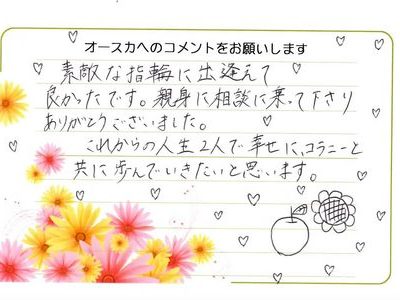 オースカへのコメントをお願いします
素敵な指輪に出逢えて
良かったです。親身に相談に乗って下さり
ありがとうございました。
これからの人生2人で幸せに、コラニーと
共に歩んでいきたいと思います。